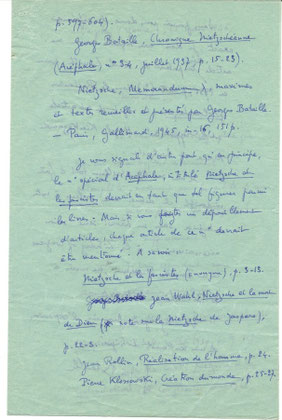 p. 599-604).
Georges Bataille, Chronique Nietzschéenne
(Acéphale, n° 3-4, juillet 1937 p. 15-23).
Nietzsche, Memorandum, maximes
et textes recueillis et présentés par Georges Bataille.
— Paris, Gallimard, 1945, in-16, 151 p.
Je vous signale d'autre part, qu'en principe,
le n° spécial d'Acéphale, intitulé Nietzsche et
les fascistes, devrait en tant que tel figurer parmi
les livres. - Mais si vous faites un dépouillement
d'articles, chaque article de ce n° devrait
être mentionné. - A savoir
Nietzsche et les fascistes (anonyme) p. 3-13.
Jean Wahl, Nietzsche et la mort
de Dieu (note sur le Nietzsche de Jaspers),
p. 22-3.
Jean Rollin, Réalisation de l'homme, p. 24.
Pierre Klossowski, Création du monde, p. 25-27.